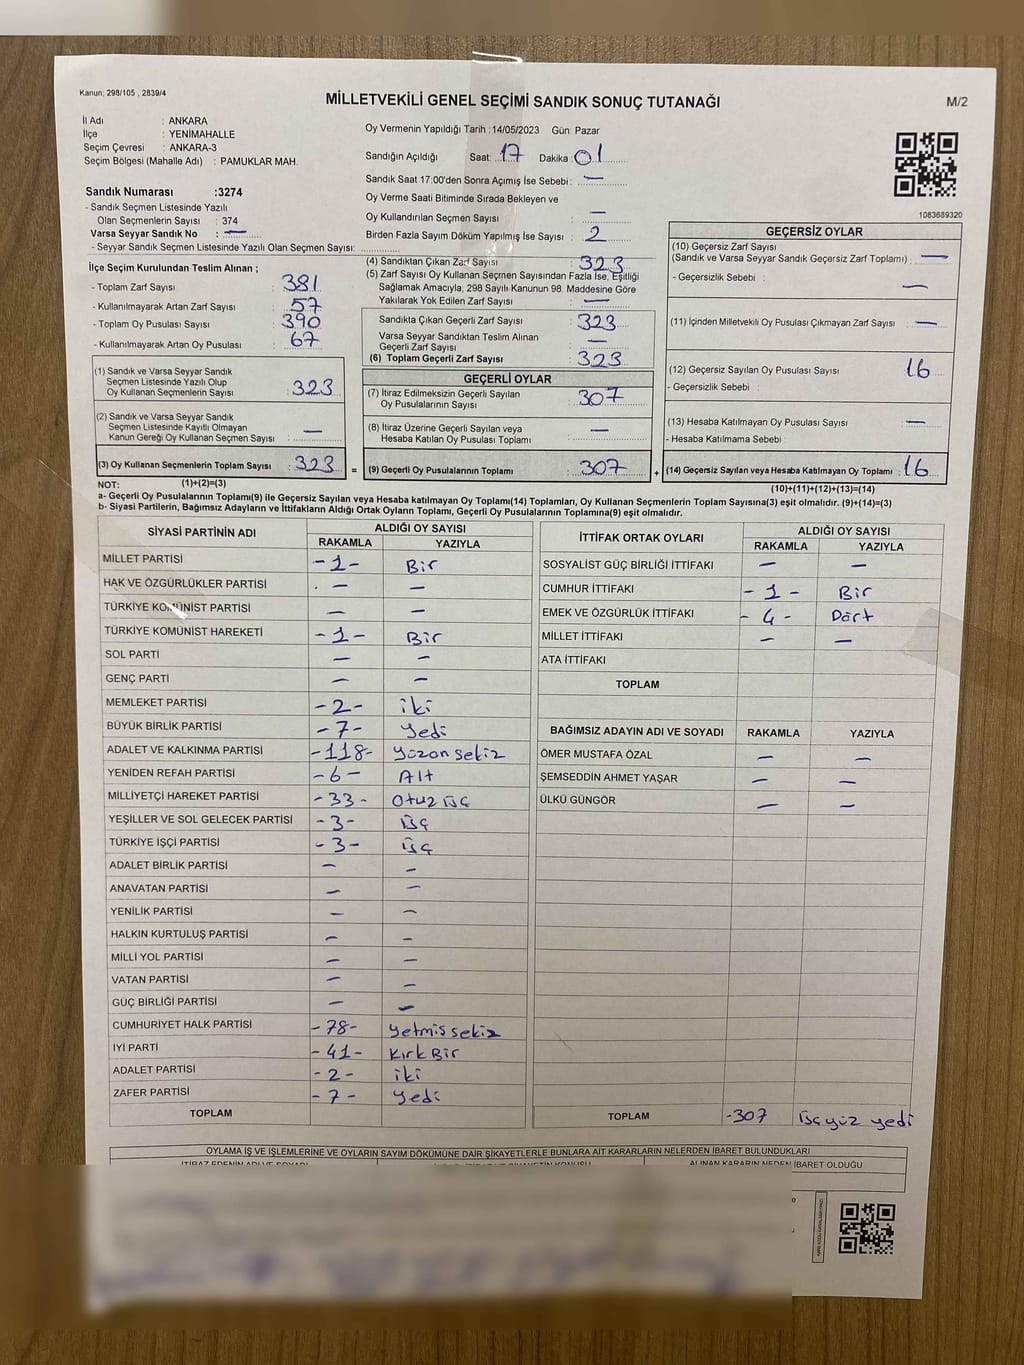 Kanun; 298/105 , 2839/4
MİLLETVEKİLİ GENEL SEÇİMİ SANDIK SONUÇ TUTANAĞI
M/2
İl Adı : ANKARA
İlçe : YENİMAHALLE
Seçim Çevresi : ANKARA-3
Seçim Bölgesi (Mahalle Adı) : PAMUKLAR MAH.
Sandık Numarası :3274
- Sandık Seçmen Listesinde Yazılı
Olan Seçmenlerin Sayısı : 374
Varsa Seyyar Sandık No : —
- Seyyar Sandık Seçmen Listesinde Yazılı Olan Seçmen Sayısı:
İlçe Seçim Kurulundan Teslim Alınan ;
- Toplam Zarf Sayısı : 381
- Kullanılmayarak Artan Zarf Sayısı : 57
- Toplam Oy Pusulası Sayısı : 390
- Kullanılmayarak Artan Oy Pusulası : 67
(1) Sandık ve Varsa Seyyar Sandık
Seçmen Listesinde Yazılı Olup
Oy Kullanan Seçmenlerin Sayısı : 323
(2) Sandık ve Varsa Seyyar Sandık
Seçmen Listesinde Kayıtlı Olmayan
Kanun Gereği Oy Kullanan Seçmen Sayısı : —
(3) Oy Kullanan Seçmenlerin Toplam Sayısı : 323
Oy Vermenin Yapıldığı Tarih : 14/05/2023 Gün: Pazar
Sandığın Açıldığı Saat: 17 Dakika: 01
Sandık Saat 17:00'den Sonra Açımış İse Sebebi : —
Oy Verme Saati Bitiminde Sırada Bekleyen ve
Oy Kullandırılan Seçmen Sayısı : —
Birden Fazla Sayım Döküm Yapılmış İse Sayısı : 2
(4) Sandıktan Çıkan Zarf Sayısı : 323
(5) Zarf Sayısı Oy Kullanan Seçmen Sayısından Fazla İse, Eşitliği
Sağlamak Amacıyla; 298 Sayılı Kanunun 98. Maddesine Göre
Yakılarak Yok Edilen Zarf Sayısı : —
Sandıkta Çıkan Geçerli Zarf Sayısı : 323
Varsa Seyyar Sandıktan Teslim Alınan
Geçerli Zarf Sayısı : —
(6) Toplam Geçerli Zarf Sayısı : 323
GEÇERLİ OYLAR
(7) İtiraz Edilmeksizin Geçerli Sayılan
Oy Pusulalarının Sayısı : 307
(8) İtiraz Üzerine Geçerli Sayılan veya
Hesaba Katılan Oy Pusulası Toplamı : —
= (9) Geçerli Oy Pusulalarının Toplamı : 307
1083689320
GEÇERSİZ OYLAR
(10) Geçersiz Zarf Sayısı
(Sandık ve Varsa Seyyar Sandık Geçersiz Zarf Toplamı) : —
- Geçersizlik Sebebi : —
(11) İçinden Milletvekili Oy Pusulası Çıkmayan Zarf Sayısı : —
(12) Geçersiz Sayılan Oy Pusulası Sayısı : 16
- Geçersizlik Sebebi :
(13) Hesaba Katılmayan Oy Pusulası Sayısı : —
- Hesaba Katılmama Sebebi
+ (14) Geçersiz Sayılan veya Hesaba Katılmayan Oy Toplamı : 16
NOT: (1)+(2)=(3)
(10)+(11)+(12)+(13)=(14)
a- Geçerli Oy Pusulalarının Toplamı(9) ile Geçersiz Sayılan veya Hesaba katılmayan Oy Toplamı(14) Toplamları, Oy Kullanan Seçmenlerin Toplam Sayısına(3) eşit olmalıdır. (9)+(14)=(3)
b- Siyasi Partilerin, Bağımsız Adayların ve İttifakların Aldığı Ortak Oyların Toplamı, Geçerli Oy Pusulalarının Toplamına(9) eşit olmalıdır.
SİYASİ PARTİNİN ADI ALDIĞI OY SAYISI
RAKAMLA YAZIYLA
MİLLET PARTİSİ -1- Bir
HAK VE ÖZGÜRLÜKLER PARTİSİ — —
TÜRKİYE KOMÜNİST PARTİSİ — —
TÜRKİYE KOMÜNİST HAREKETİ -1- Bir
SOL PARTİ — —
GENÇ PARTİ — —
MEMLEKET PARTİSİ -2- iki
BÜYÜK BİRLİK PARTİSİ -7- yedi
ADALET VE KALKINMA PARTİSİ -118- yüzonsekiz
YENİDEN REFAH PARTİSİ -6- Altı
MİLLİYETÇİ HAREKET PARTİSİ -33- Otuz üç
YEŞİLLER VE SOL GELECEK PARTİSİ -3- üç
TÜRKİYE İŞÇİ PARTİSİ -3- üç
ADALET BİRLİK PARTİSİ — —
ANAVATAN PARTİSİ — —
YENİLİK PARTİSİ — —
HALKIN KURTULUŞ PARTİSİ — —
MİLLİ YOL PARTİSİ — —
VATAN PARTİSİ — —
GÜÇ BİRLİĞİ PARTİSİ — —
CUMHURİYET HALK PARTİSİ -78- yetmiş sekiz
İYİ PARTİ -41- Kırk Bir
ADALET PARTİSİ -2- iki
ZAFER PARTİSİ -7- yedi
TOPLAM
İTTİFAK ORTAK OYLARI ALDIĞI OY SAYISI
RAKAMLA YAZIYLA
SOSYALİST GÜÇ BİRLİĞİ İTTİFAKI — —
CUMHUR İTTİFAKI -1- Bir
EMEK VE ÖZGÜRLÜK İTTİFAKI -4- Dört
MİLLET İTTİFAKI — —
ATA İTTİFAKI
TOPLAM
BAĞIMSIZ ADAYIN ADI VE SOYADI RAKAMLA YAZIYLA
ÖMER MUSTAFA ÖZAL — —
ŞEMSEDDİN AHMET YAŞAR — —
ÜLKÜ GÜNGÖR — —
TOPLAM -307 üçyüz yedi
OYLAMA İŞ VE İŞLEMLERİNE VE OYLARIN SAYIM DÖKÜMÜNE DAİR ŞİKAYETLERLE BUNLARA AİT KARARLARIN NELERDEN İBARET BULUNDUKLARI
ALINAN KARARIN NEDEN İBARET OLDUĞU